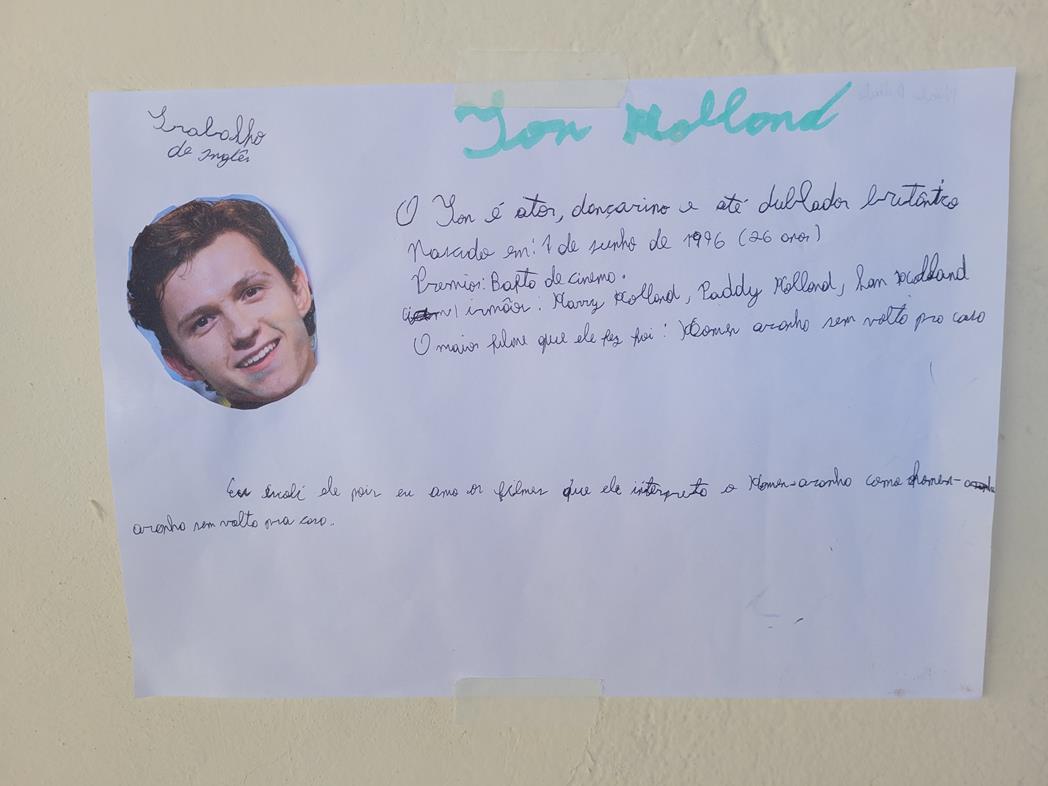 Trabalho
de Inglês
Tom Holland
O Tom é ator, dançarino e até dublador britântico
Nascido em: 1 de junho de 1996 (26 anos)
Premios: Bafta de cinema.
irmãos: Harry Holland, Paddy Holland, Sam Holland
O maior filme que ele fez foi: Homem aranha sem volta pra casa
Eu escoli ele pois eu amo os filmes que ele interpreta o Homem-aranha como homem-
aranha sem volta pra casa.